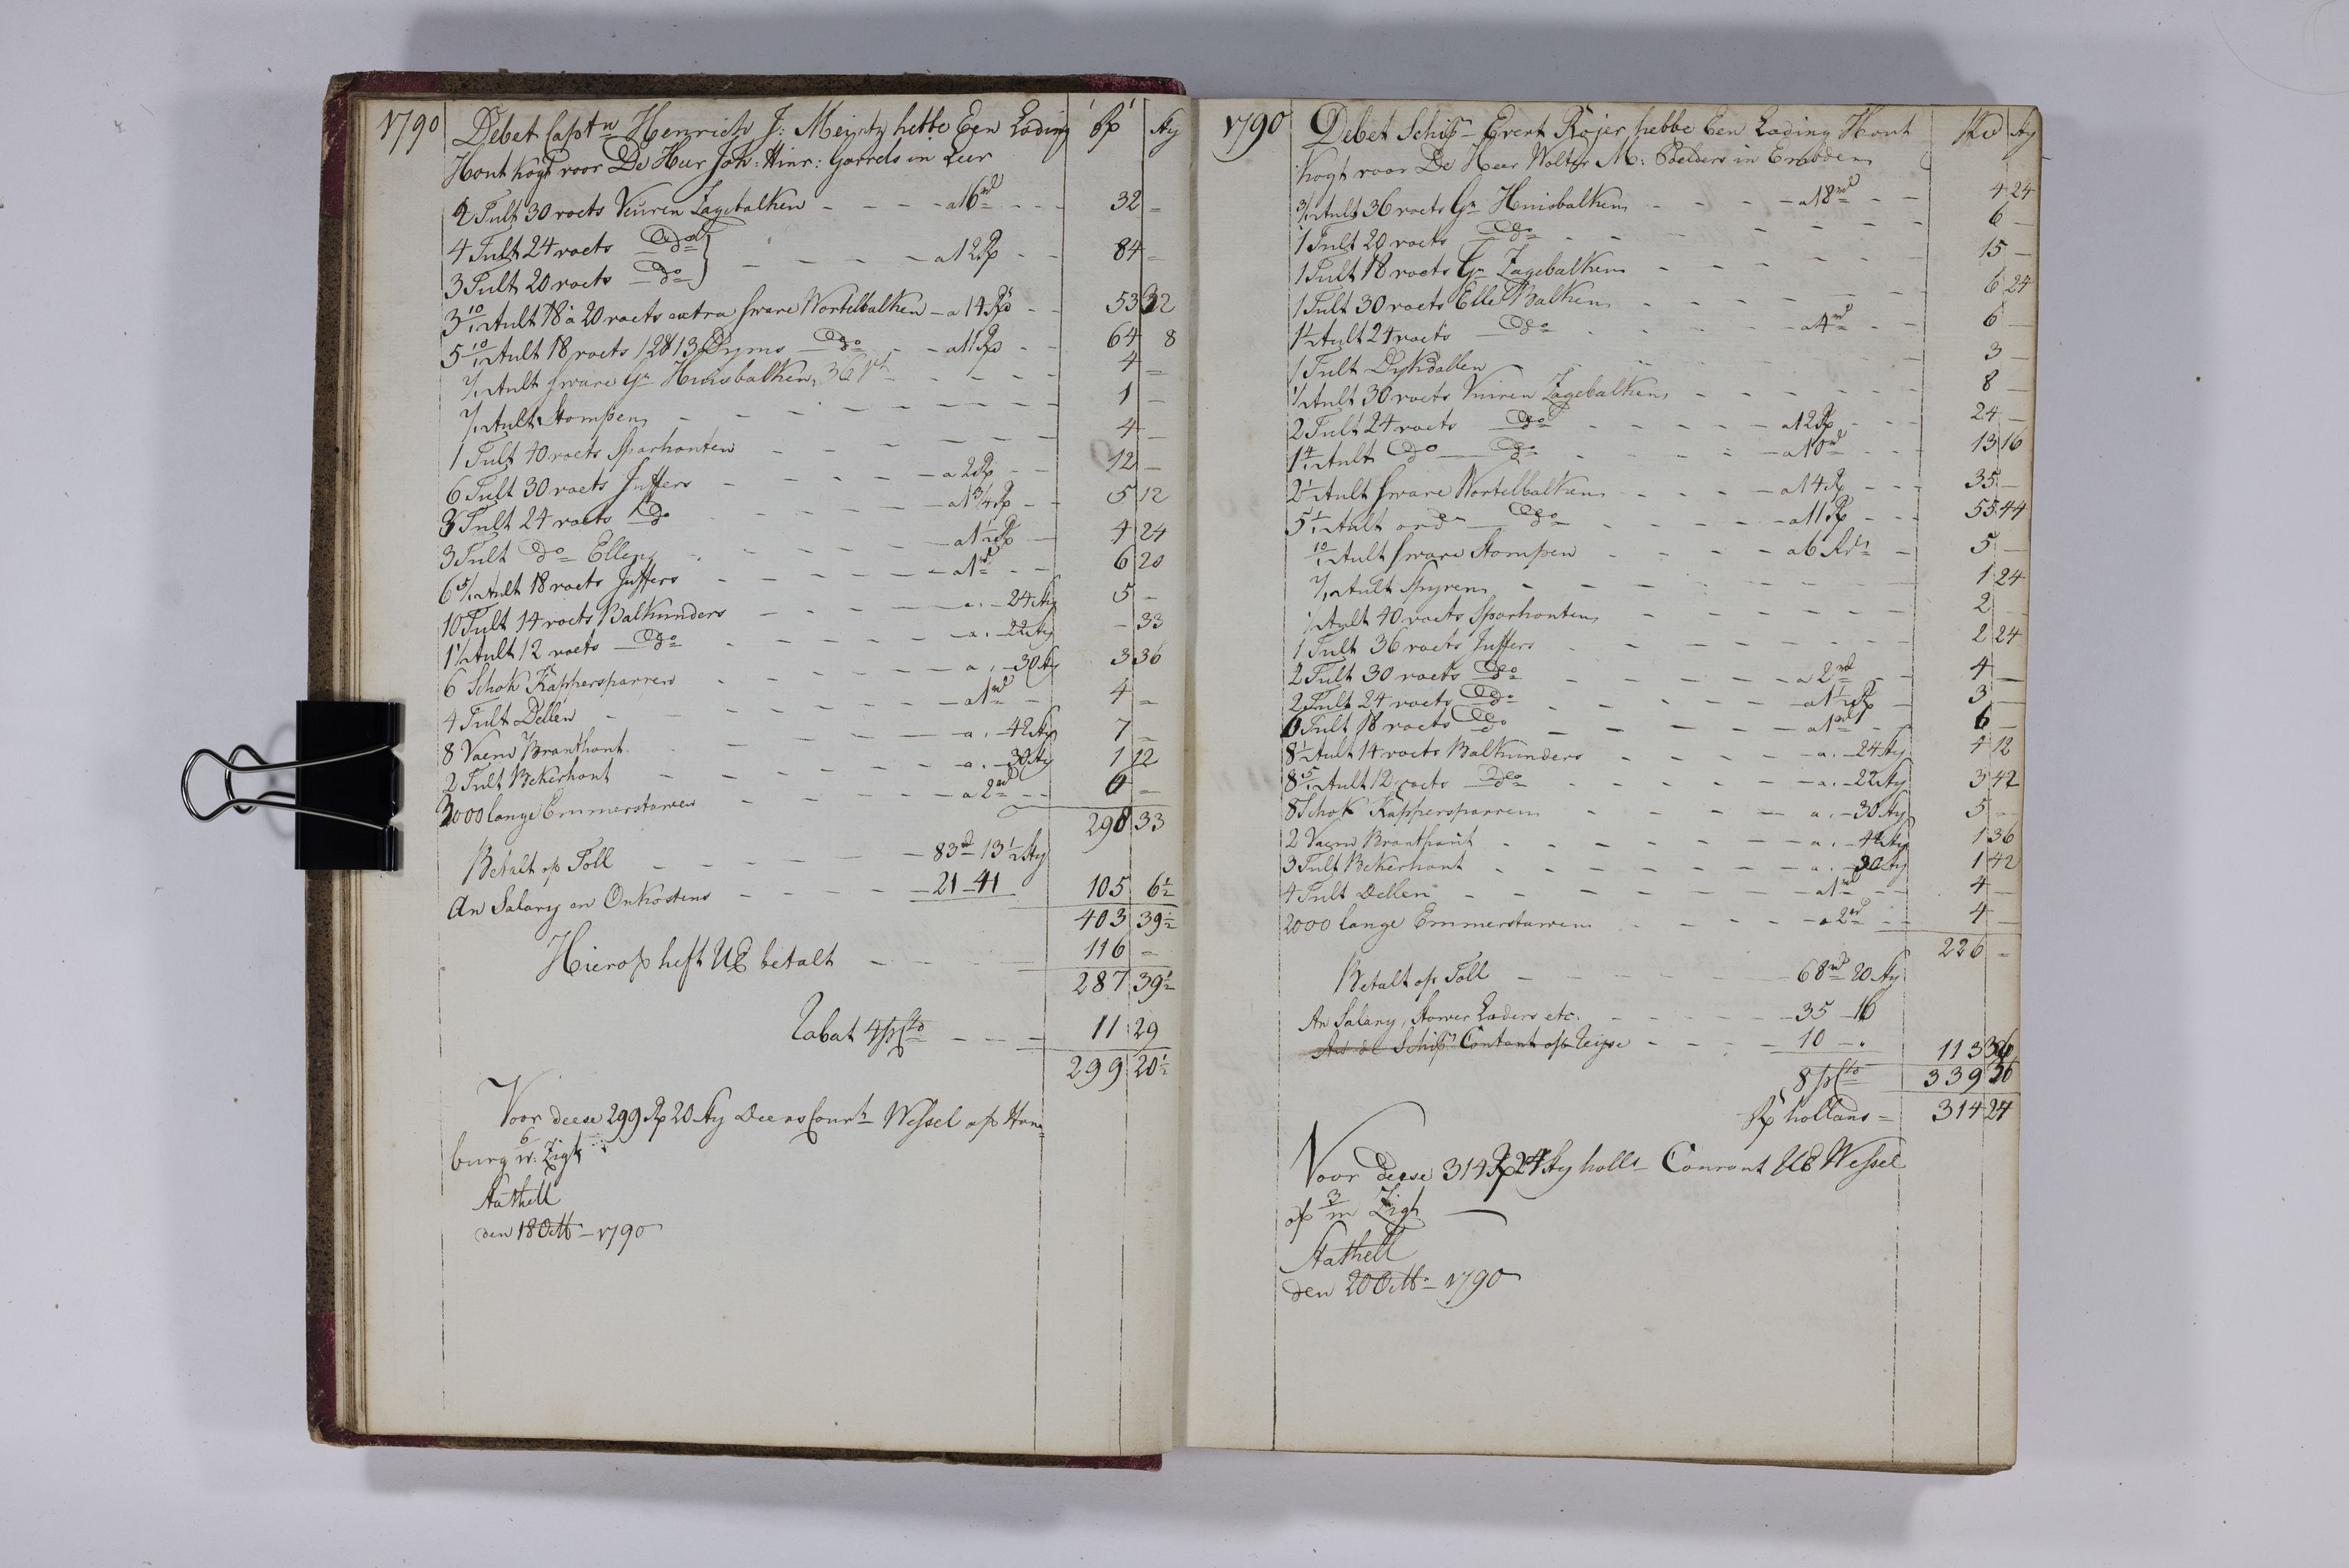 1790 Debet Captn Henrich J: Meintz hebbe Een Lading Rd Sty
Hont kogt voor De Heer Joh: Hinr: Garrels in Leer
2 Tult 30 voets Veuren Zagebalken - - - a 16 rd - - - 32 -
4 Tult 24 voets Do
3 Tult 20 voets Do } - - - - a 12 Rd - - 84 -
3 10/12 Tult 18 a 20 voets extra sware Wortelbalken - a 14 Rd - - 53 32
5 10/12 Tult 18 voets 12 & 13 Dyms Do - - a 11 Rd - - 64 8
/12 Tult sware Gr Huisbalken 36 - - - - 4 -
/12 Tult Stompen - - - - - 1 -
1 Tult 40 voets Sparhonten - - - - 4 -
6 Tult 30 voets Juffers - - - - a 2 Rd - - 12 -
3 Tult 24 voets Do - - - - a 1 3/4 Rd - - 5 12
3 Tult Do Ellen - - - - a 1 1/2 Rd - 4 24
6 5/12 Tult 18 voets Juffers - - - - a 1 rd - - 6 20
10 Tult 14 voets Balkunders - - - - a . - 24 Sty 5 -
1 1/2 Tult 12 voets Do - - - - a . - 22 Sty - 33
6 Schok Kappersparren - - - - a . - 30 Sty 3 36
4 Tult Dellen - - - - a 1 rd - 4 -
8 Vaem Branthont - - - - a . - 42 Sty 7 -
2 Tult Bekerhont - - - - a . - 30 Sty 1 12
3000 lange Emmerstawen - - - - a 2 rd - - 6 -
298 33
Betalt op Toll - - - - 83 rd 13 1/2 Sty
An Salary en Onkostens - - - - 21 - 41 105 6 1/2
403 39 1/2
Hierop heft UE betalt - - - 116 -
287 39 1/2
Rabat 4 pCto - - - 11 29
299 20 1/2
Voor deese 299 Rd 20 Sty Deens Cour Wessel op Ham=
burg 6 w: Zigt
Stathell
den 18 Octb - 1790
1790 Debet Schip Evert Rojer hebbe Een Lading Hont Rd Sty
kogt voor De Heer Wolter M: Poelders in Emden
3/12 Tult 36 voets Gr Huisbalken - - - a 18 rd - - 4 24
1 Tult 20 voets Do - - - - 6 -
1 Tult 18 voets Gr Zagebalken - - - - 15 -
1 Tult 30 voets Elle Balken - - - - 6 24
1 1/2 Tult 24 voets Do - - - a 4 rd - - 6 -
1 Tult Dykdallen - - - - 3 -
1/2 Tult 30 voets Vuiren Zagebalken - - - - 8 -
2 Tult 24 voets Do - - - - a 12 Rd - - 24 -
1 4/12 Tult Do Do - - - - a 10 rd - - 13 16
2 1/2 Tult sware Wortelbalken - - - a 14 Rd - - 35 -
5 1/12 Tult ord Do - - - - a 11 Rd - - 55 44
10/12 Tult sware Stompen - - - - a 6 Rd - 5 -
/12 Tult Spyren - - - - 1 24
1/2 Tult 40 voets Sparhonten - - - - 2 -
1 Tult 36 voets Juffers - - - - 2 24
2 Tult 30 voets Do - - - - a 2 rd - - 4 -
2 Tult 24 voets Do - - - - a 1 1/2 Rd - 3 -
6 Tult 18 voets Do - - - - a 1 rd - - 6 -
8 1/2 Tult 14 voets Balkunders - - - - a . - 24 Sty 4 12
8 5/12 Tult 12 voets Do - - - - a . - 22 Sty 3 42
8 Schok Kappersparren - - - - a . - 30 Sty 5 -
2 Vaem Branthont - - - - a . - 42 Sty 1 36
3 Tult Bekerhont - - - - a . - 30 Sty 1 42
4 Tult Dellen - - - - a 1 rd - - 4 -
2000 lange Emmerstawen - - - - a 2 rd - - 4 -
226 -
Betalt op Toll - - - - 68 rd 20 Sty
An Salary, Stower Laders etc. - - - - 35 - 16
An de Schip Contant op Reise - - - - 10 - . 113 36
8 pCto 339 36
Rd hollans = 314 24
Voor deese 314 Rd 24 Sty holls Courant UE Wessel
op 3 m Zigt
Stathell
den 20 Octb - 1790